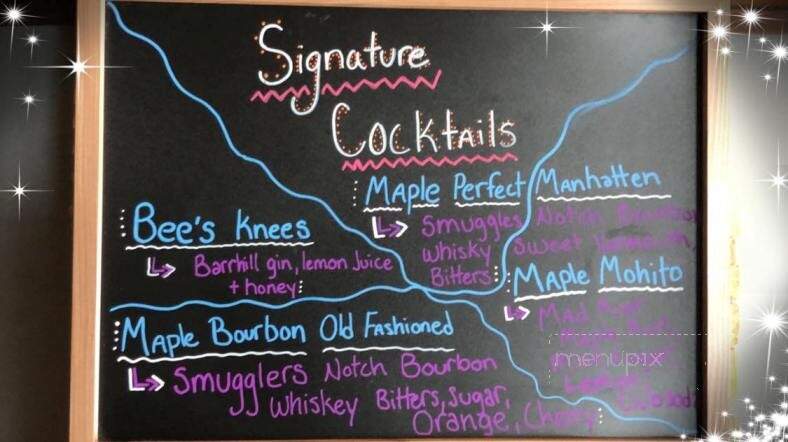 Signature
Cocktails
Bee's Knees
Barrhill gin, lemon Juice
+ honey
Maple Perfect Manhatten
Smuggles Notch Bourbon
Whisky Sweet Vermouth,
Bitters
Maple Mohito
Mad River
menupix
Maple Bourbon Old Fashioned
Smugglers Notch Bourbon
Whiskey Bitters, Sugar,
Orange, Cherry